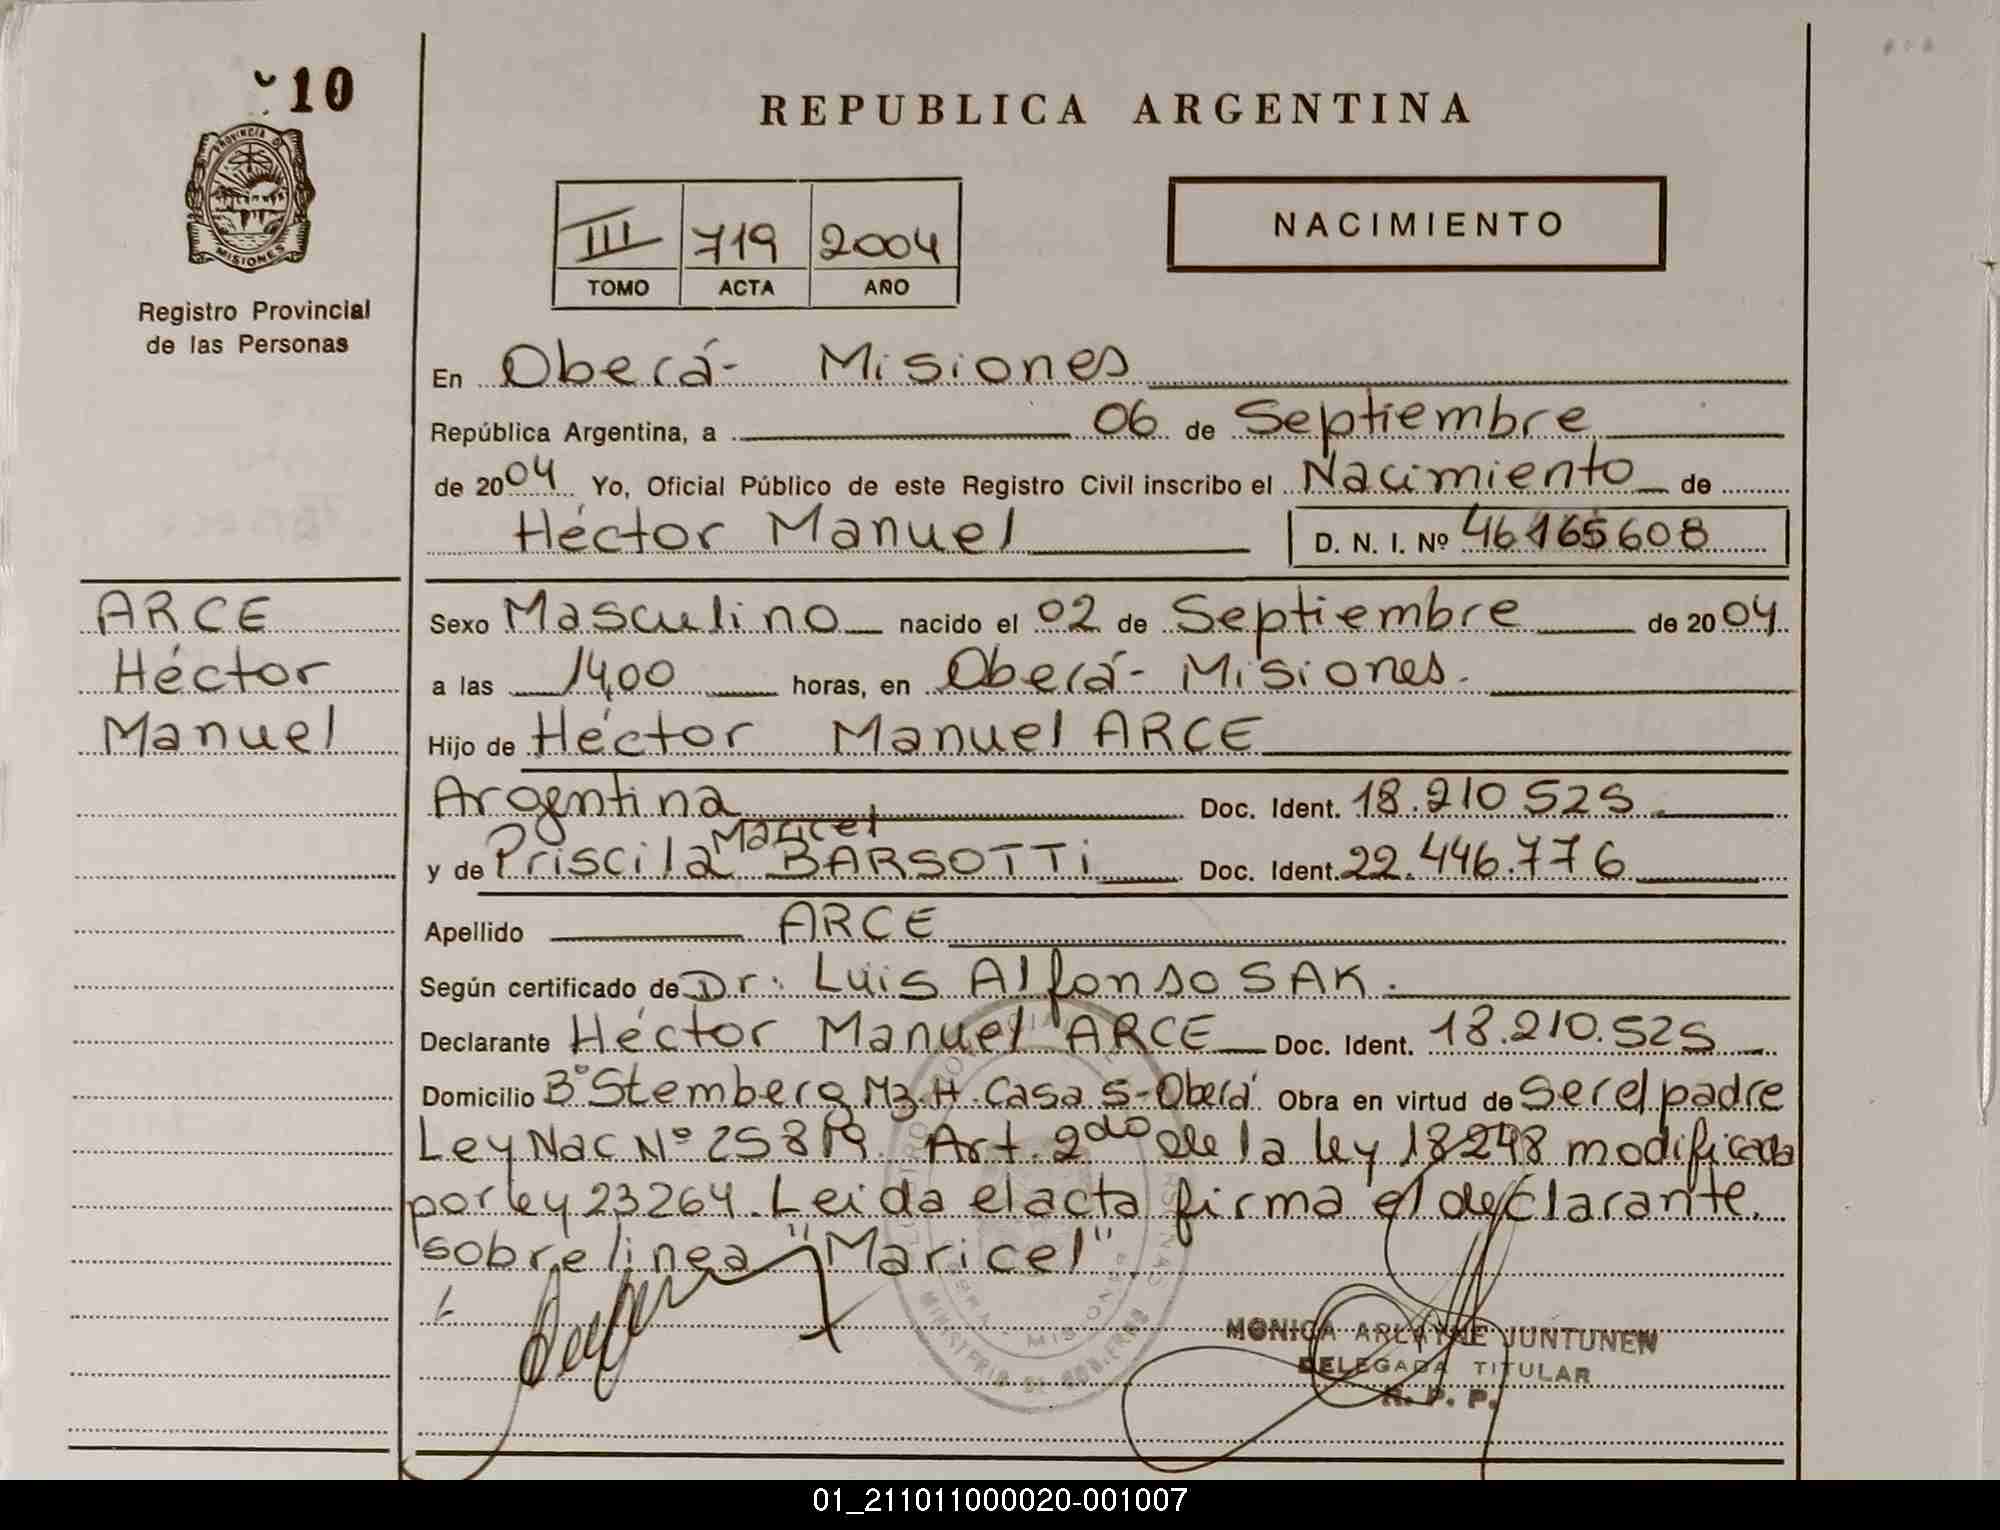 10
PROVINCIA DE
MISIONES
Registro Provincial
de las Personas
REPUBLICA ARGENTINA
III 719 2004
TOMO ACTA AÑO
NACIMIENTO
En Oberá- Misiones
República Argentina, a 06 de Septiembre
de 2004 Yo, Oficial Público de este Registro Civil inscribo el Nacimiento de
Héctor Manuel D. N. I. Nº 46165608
ARCE
Héctor
Manuel
Sexo Masculino nacido el 02 de Septiembre de 2004
a las 14,00 horas, en Oberá- Misiones.
Hijo de Héctor Manuel ARCE
Argentina Doc. Ident. 18.210.525
Maricel
y de Priscila BARSOTTi Doc. Ident. 22.446.776
Apellido ARCE
Según certificado de Dr. Luis Alfonso SAK.
Declarante Héctor Manuel ARCE Doc. Ident. 18.210.525
Domicilio Bº Stemberg Mz.H. Casa 5-Oberá Obra en virtud de Ser el padre
Ley Nac Nº 25819. Art. 2do de la ley 18248 modificada
por ley 23264. Leida el acta firma el declarante.
sobre linea "Maricel"
MINISTERIO DE GOBIERNO
MISIONES
MONICA ARLAYNE JUNTUNEN
DELEGADA TITULAR
R. P. P.
01_211011000020-001007